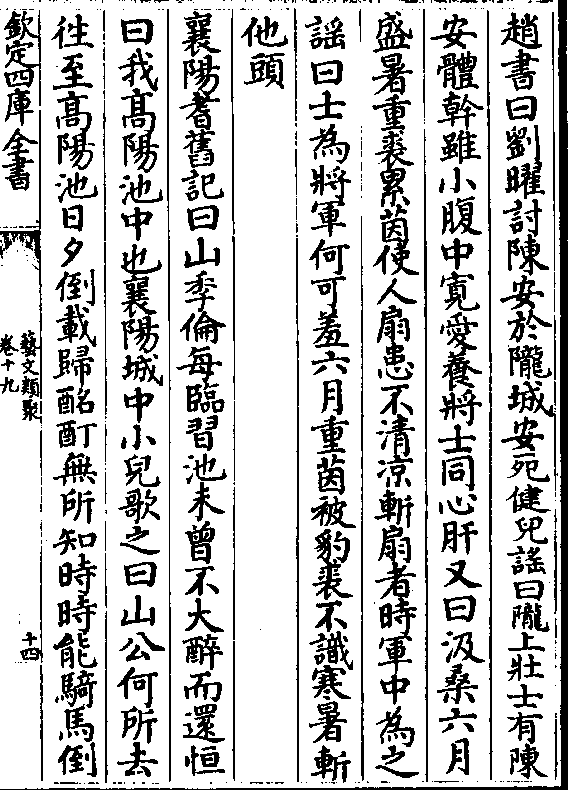 趙書曰劉曜討陳安於隴城安死健兒謡曰隴上壯士有陳
安體幹雖小腹中寛愛養將士同心肝又曰汲桑六月
盛暑重裘累茵使人扇患不清凉斬扇者時軍中為之
謡曰士為將軍何可羞六月重茵被豹裘不識寒暑斬
他頭
襄陽耆舊記曰山季倫每臨習池未曾不大醉而還恒
曰我髙陽池中也襄陽城中小兒歌之曰山公何所去
徃至髙陽池日夕倒載歸酩酊無所知時時能騎馬倒
欽定四庫全書
藝文類聚
卷十九
十四